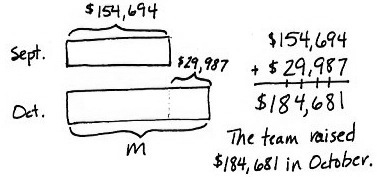 $154,694
Sept.
$29,987
Oct.
m
$154,694
+ $29,987
$184,681
The team raised
$184,681 in October.